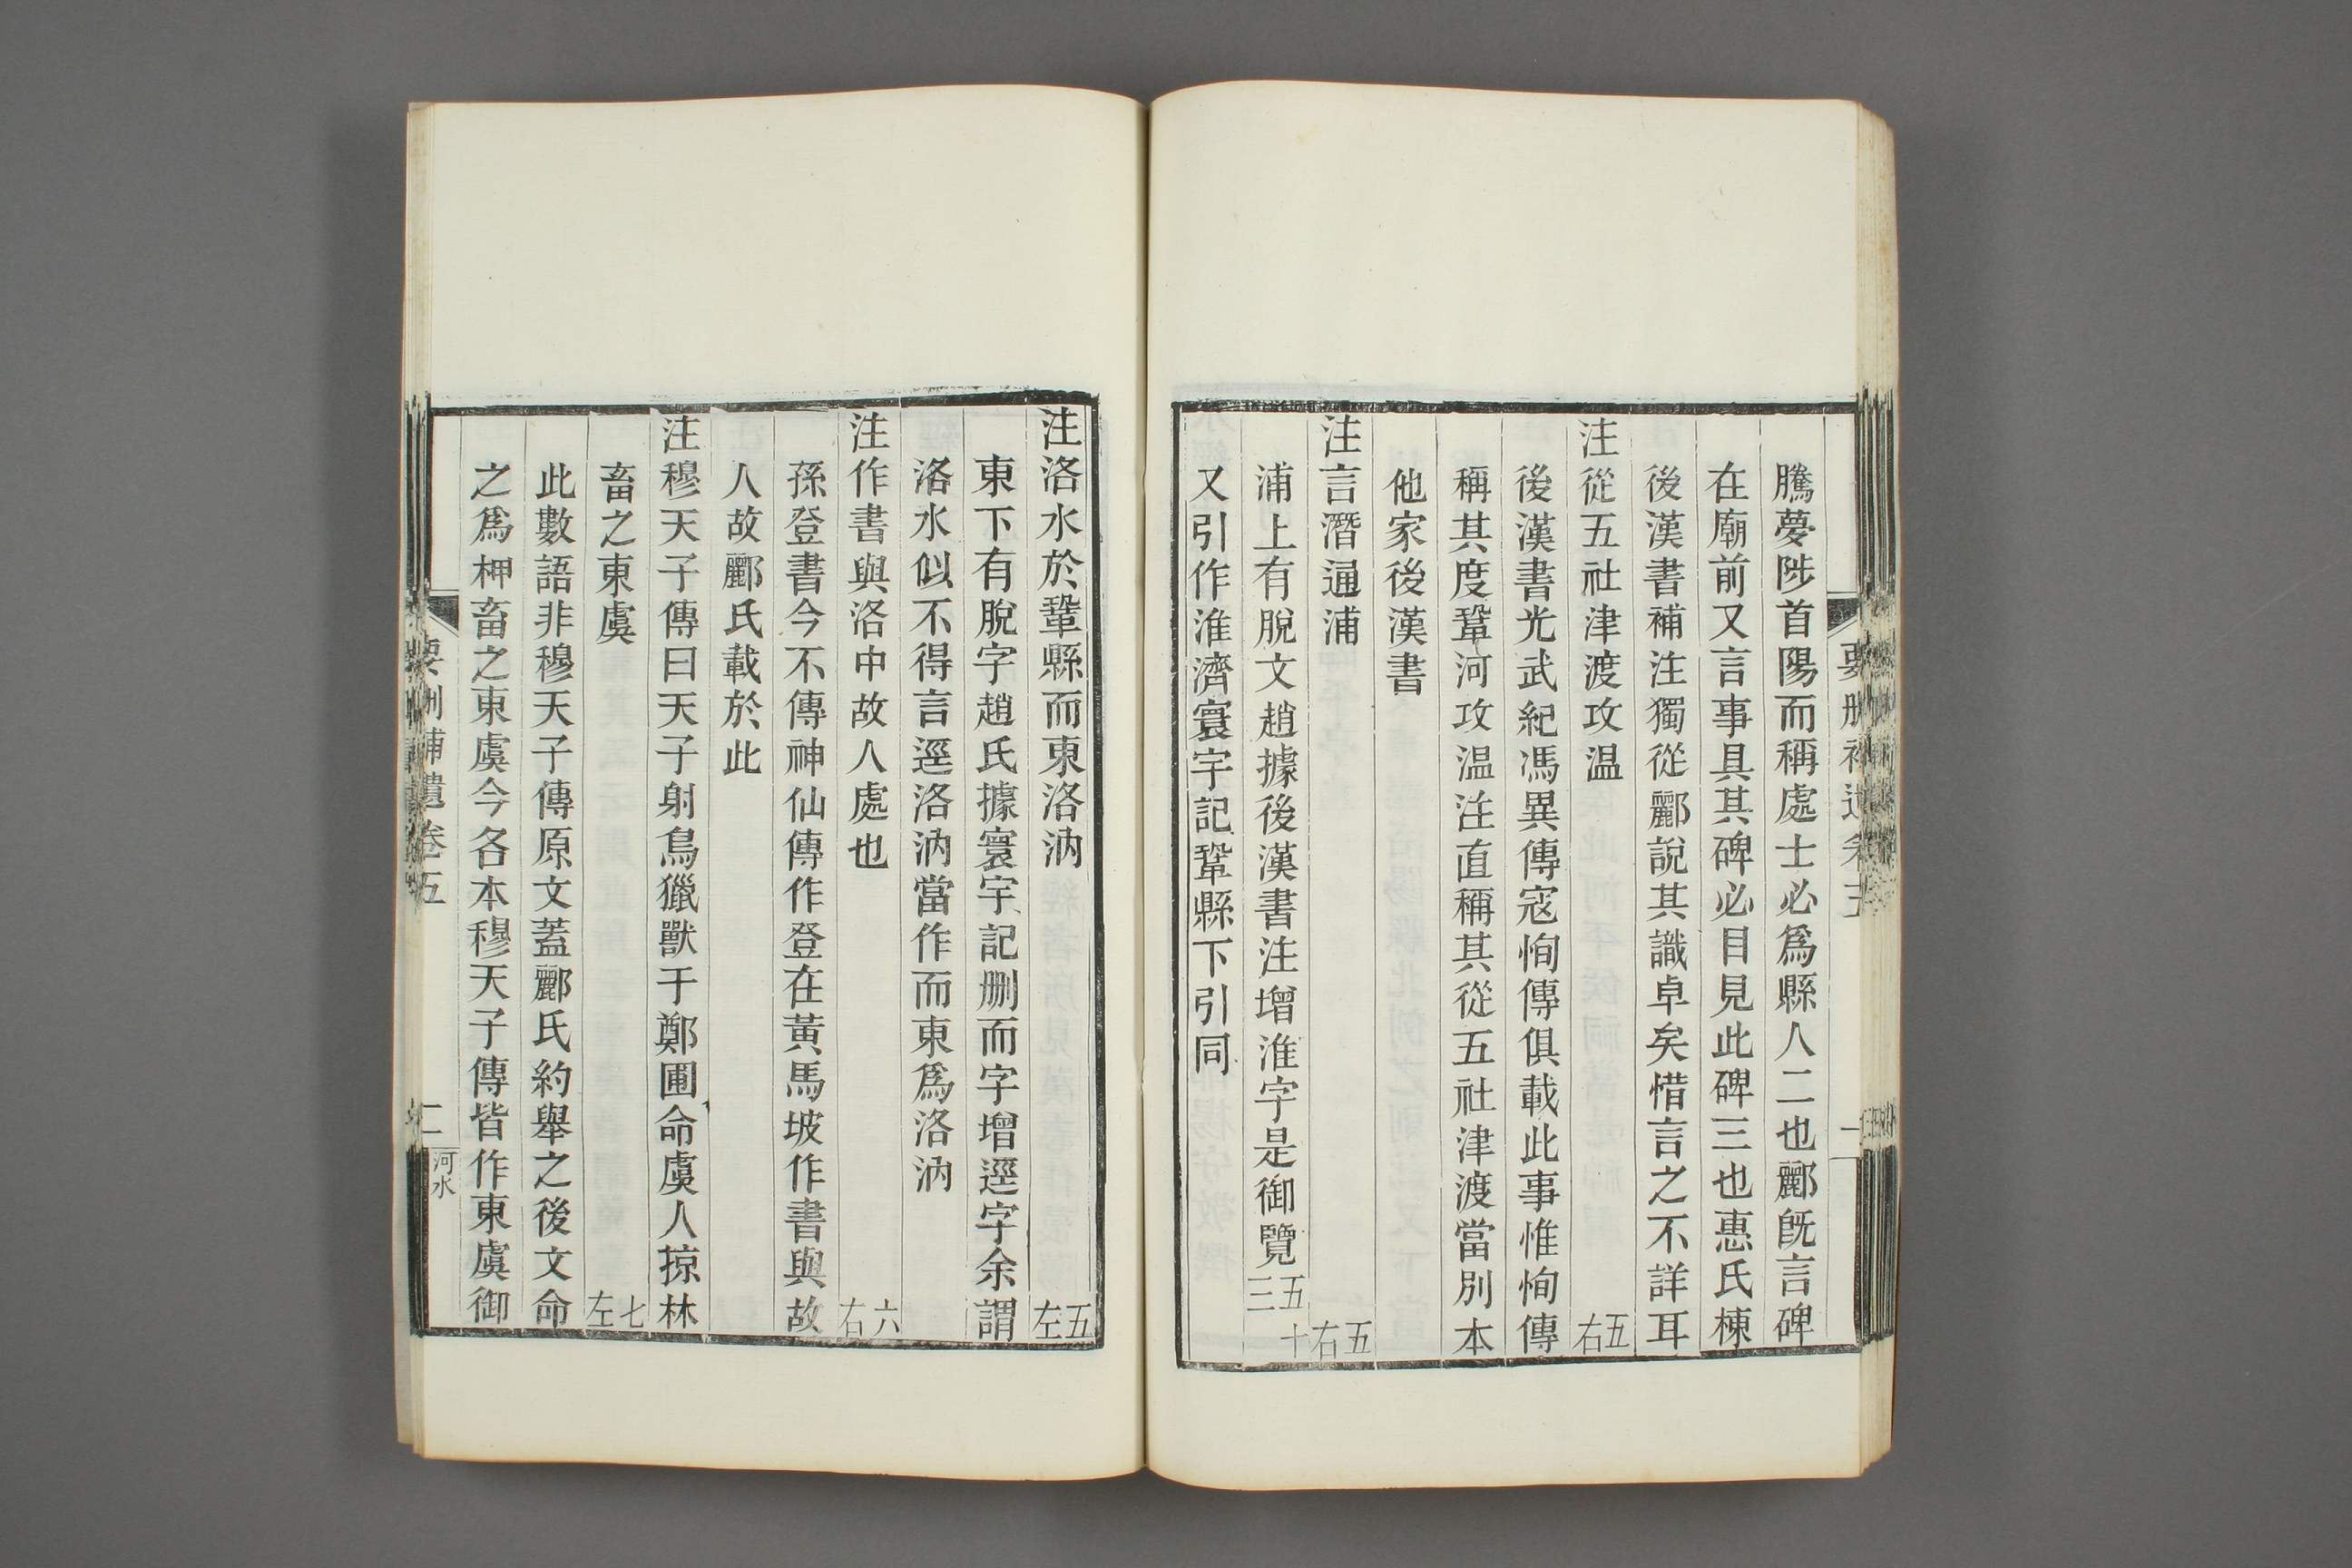 騰夢陟首陽而稱處士必爲縣人二也酈旣言碑
在廟前又言事具其碑必目見此碑三也惠氏棟
後漢書補注獨從酈說其識卓矣惜言之不詳耳
注從五社津渡攻温 五右
後漢書光武紀馮異傳寇恂傳俱載此事惟恂傳
稱其度鞏河攻温注直稱其從五社津渡當別本
他家後漢書
注言潛通浦 五右
浦上有脫文趙據後漢書注增淮字是御覽五十三
又引作淮濟寰宇記鞏縣下引同
注洛水於鞏縣而東洛汭 五左
東下有脫字趙氏據寰宇記删而字增逕字余謂
洛水似不得言逕洛汭當作而東爲洛汭
注作書與洛中故人處也 六右
孫登書今不傳神仙傳作登在黃馬坡作書與故
人故酈氏載於此
注穆天子傳曰天子射鳥獵獸于鄭圃命虞人掠林
畜之東虞 七左
此數語非穆天子傳原文蓋酈氏約舉之後文命
之爲柙畜之東虞今各本穆天子傳皆作東虞御
要删補遺卷五 二 河水